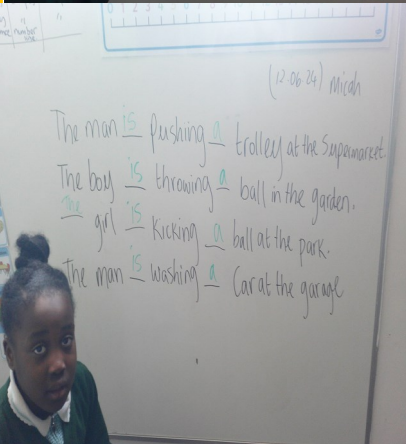 0 1 2 3 4 5 6 7
number
(12.06.24) Micah
The man is pushing a trolley at the Supermarket
The boy is throwing a ball in the garden.
The girl is kicking a ball at the park.
The man is washing a Car at the garage